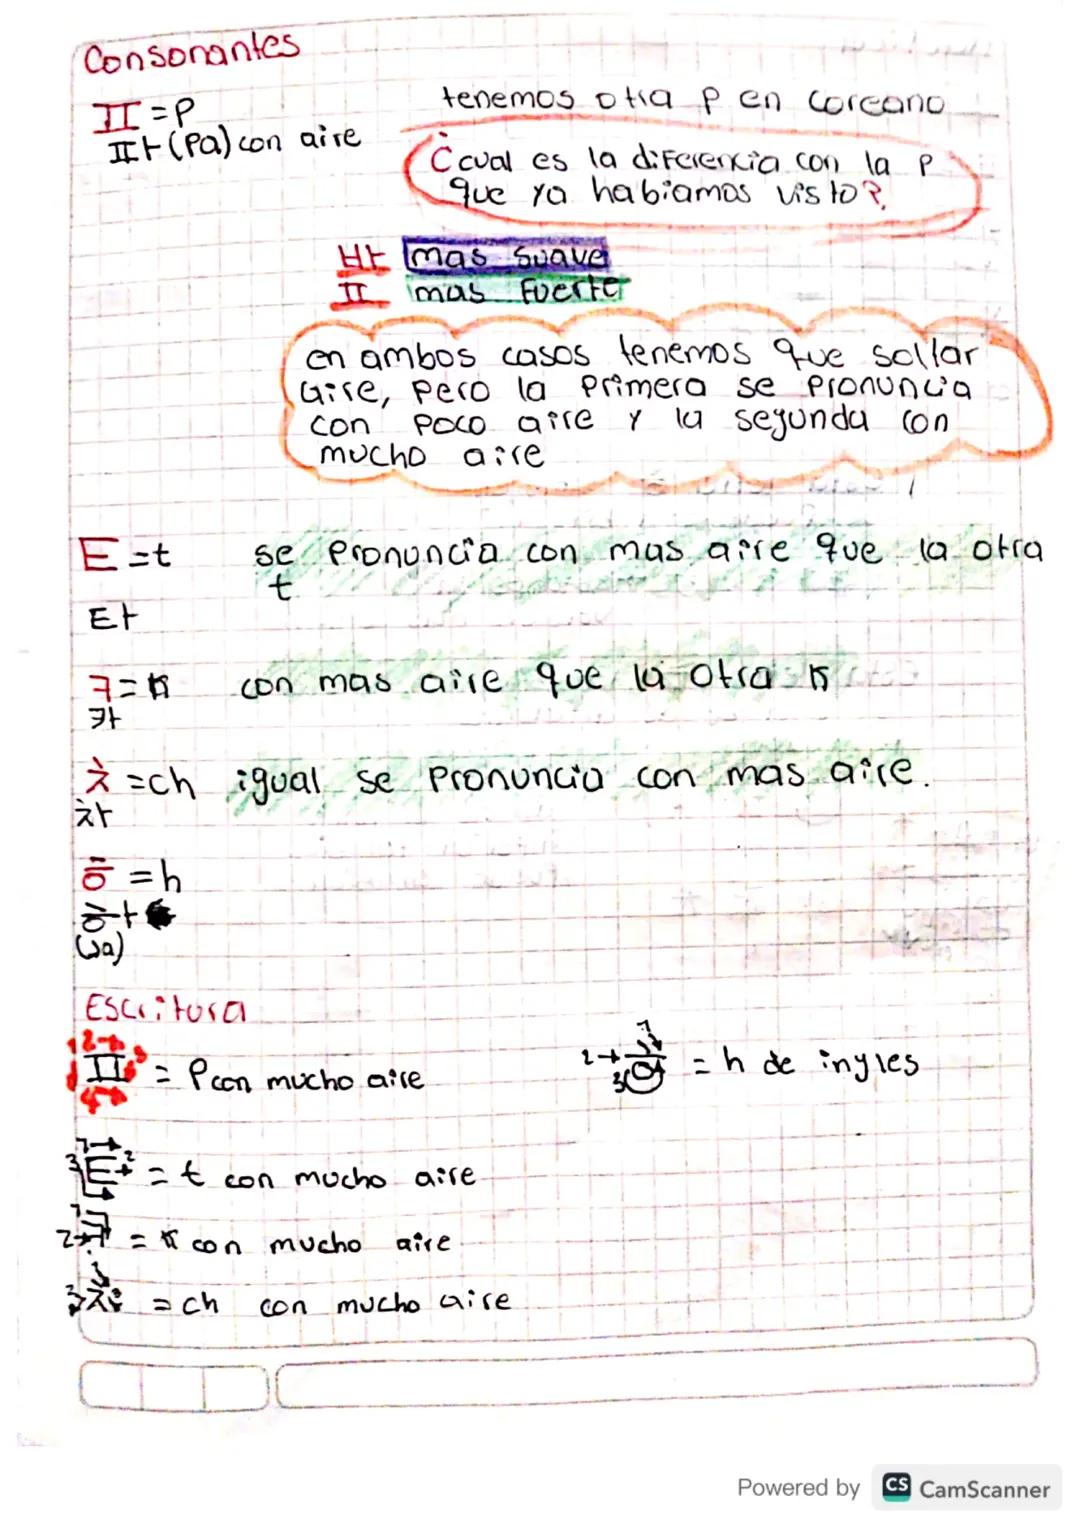 Consonantes
ㅍ = P
파 (Pa) con aire
tenemos otra p en coreano
¿cual es la diferencia con la p
que ya habiamos visto?
바 mas suave
ㅍ mas fuerte
en ambos casos tenemos que soltar
aire, pero la primera se pronuncia
con poco aire y la segunda con
mucho aire
ㅌ = t se pronuncia con mas aire que la otra
t
타
ㅋ = k con mas aire que la otra k
카
ㅊ = ch igual se pronuncia con mas aire.
차
ㅎ = h
하
(Ja)
Escritura
1 2 3 4 ㅍ = P con mucho aire
1 2 3 ㅎ = h de ingles
1 2 3 ㅌ = t con mucho aire
1 2 ㅋ = k con mucho aire
3 ㅊ = ch con mucho aire
Powered by CS CamScanner